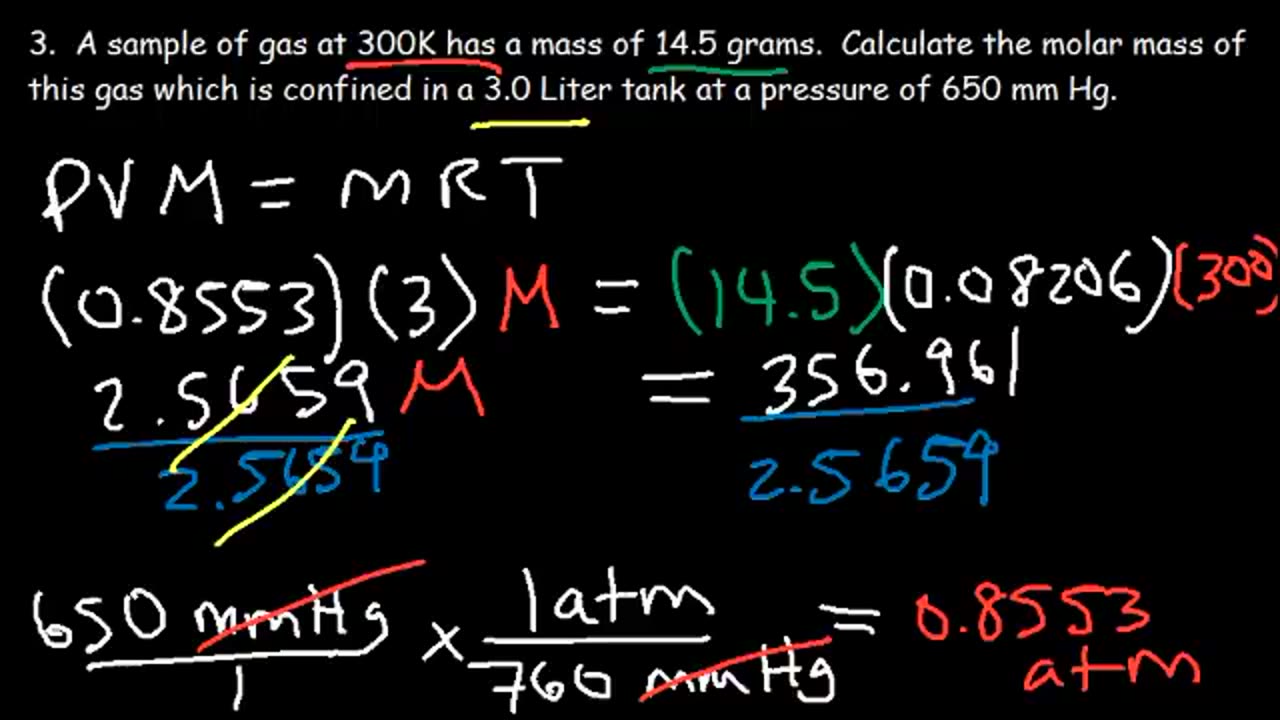 3. A sample of gas at 300K has a mass of 14.5 grams. Calculate the molar mass of
this gas which is confined in a 3.0 Liter tank at a pressure of 650 mm Hg.
PVM = mRT
(0.8553)(3)M = (14.5)(0.08206)(300)
2.5659 M = 356.961
2.5659 2.5659
650 mmHg × 1 atm = 0.8553
1 760 mmHg atm